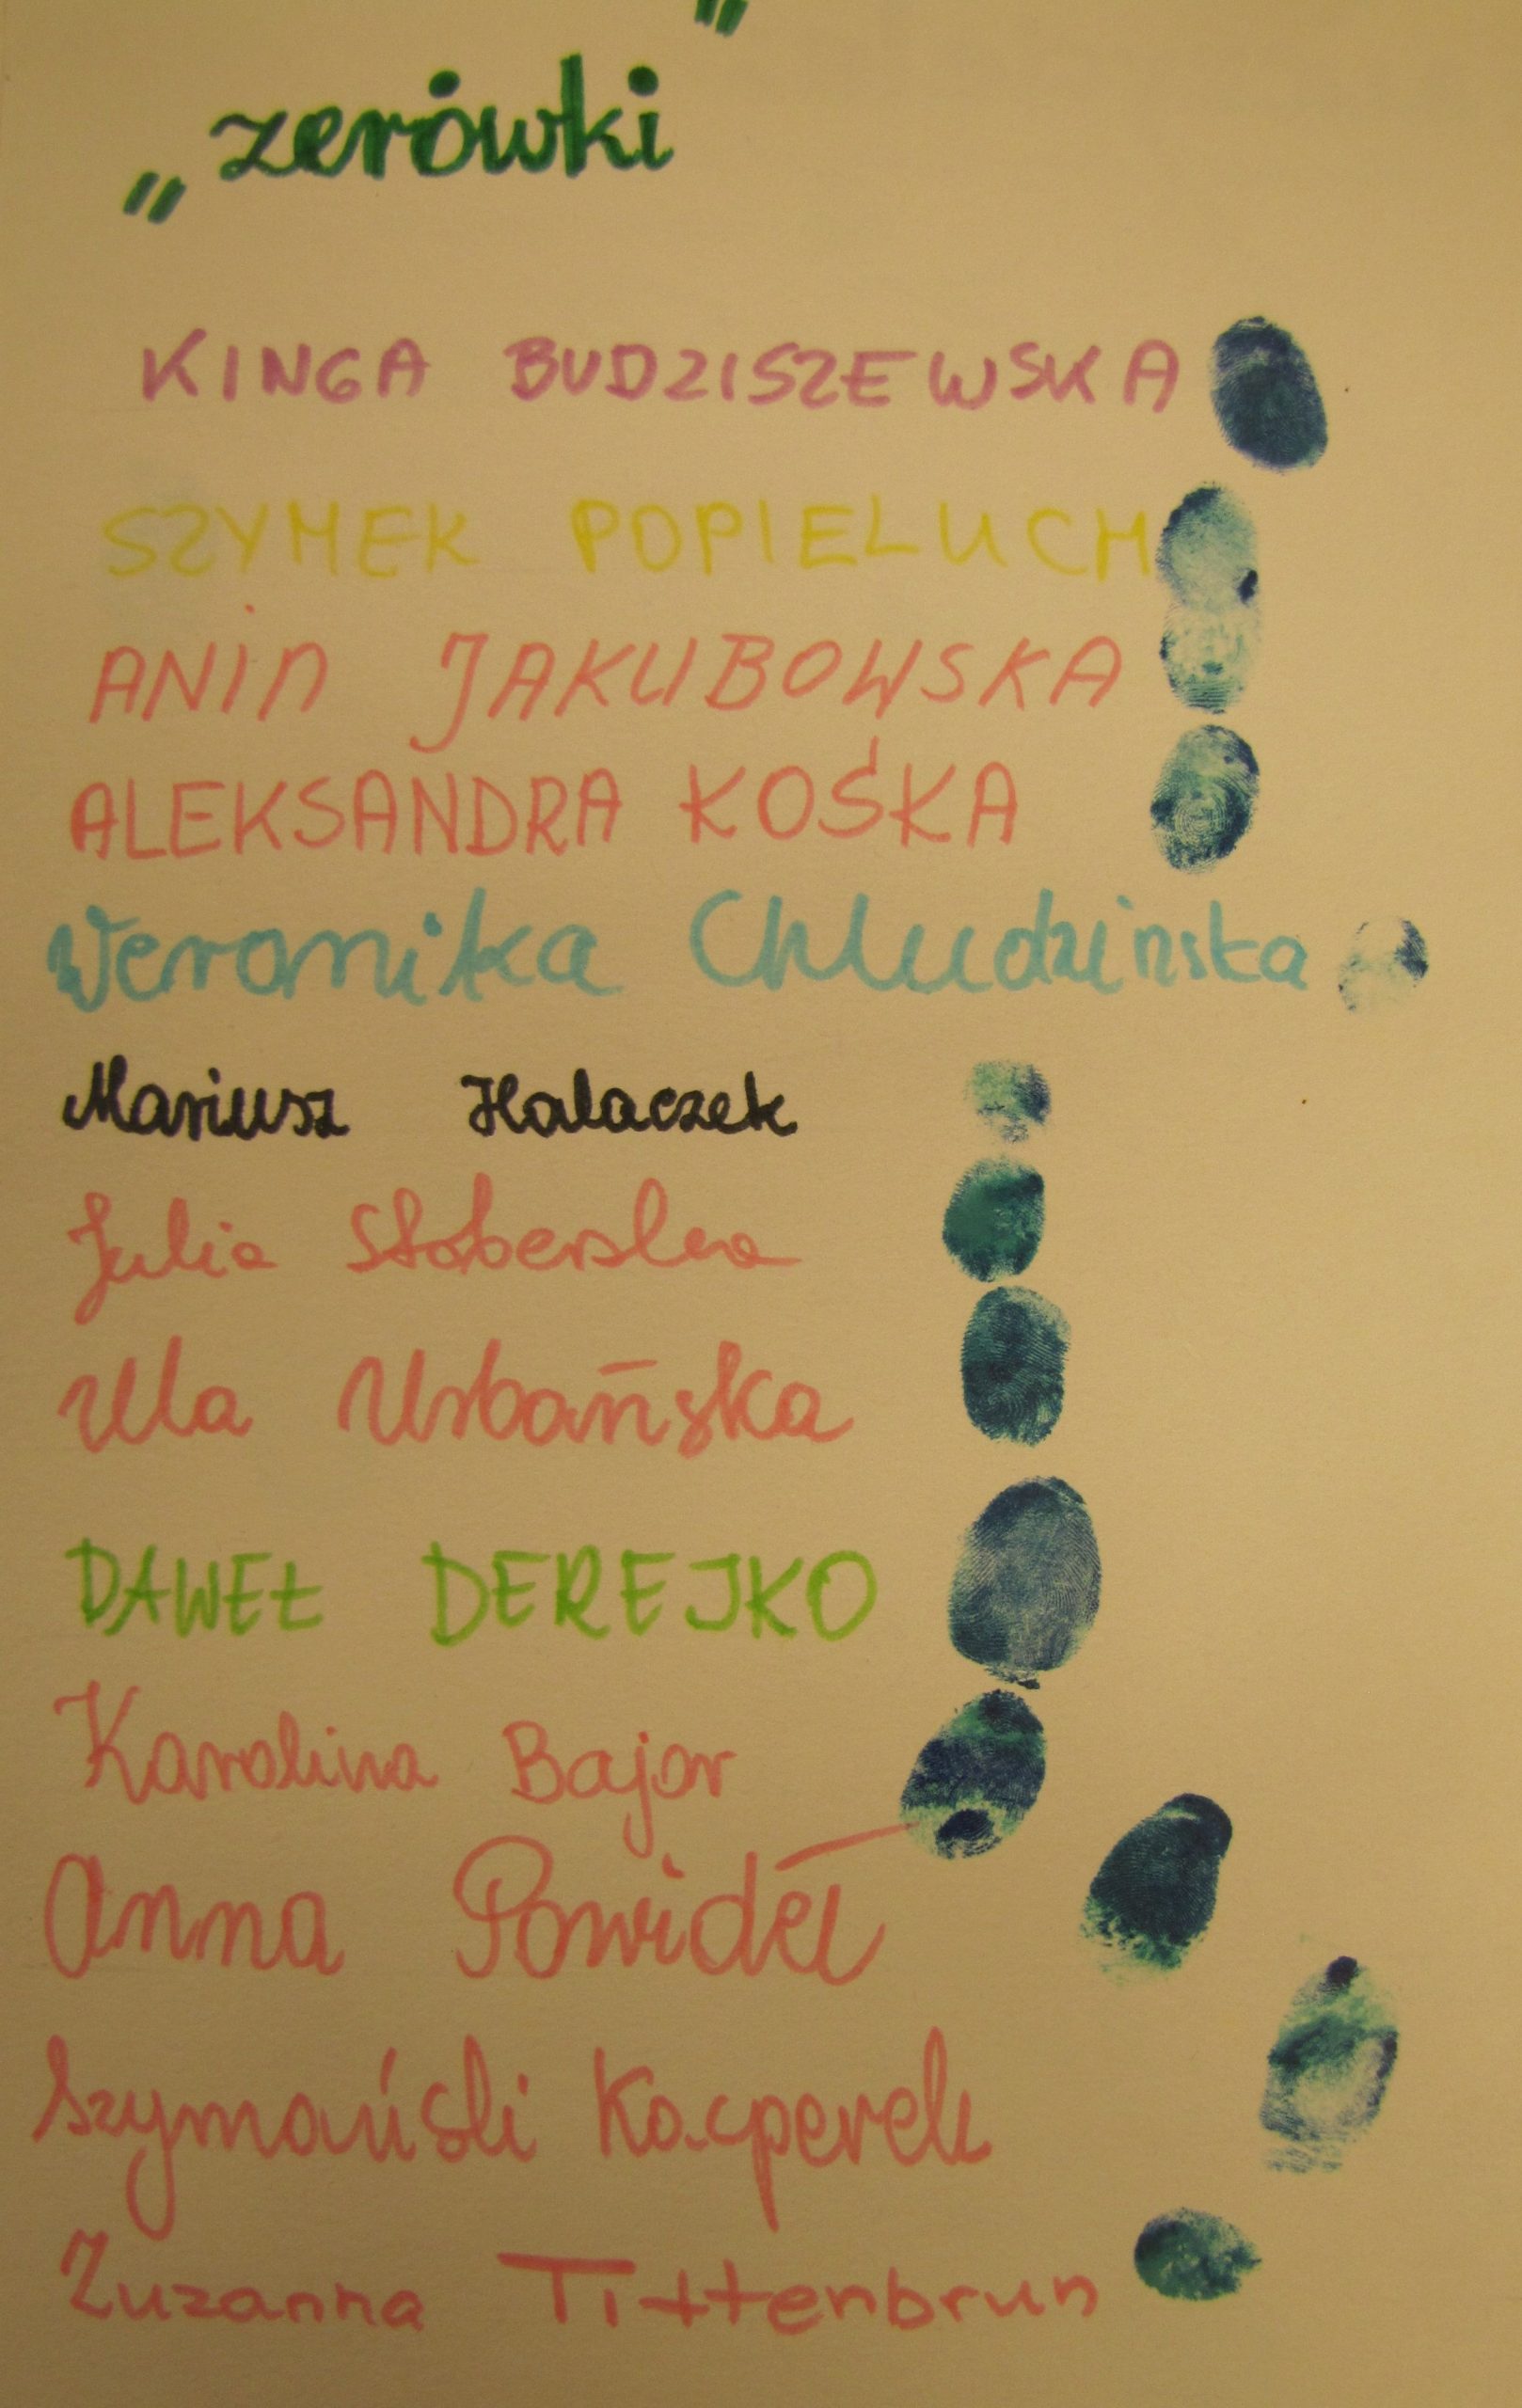 ”
„zerówki
KINGA BUDZISZEWSKA
SZYMEK POPIELUCH
ANiA JAKUBOWSKA
ALEKSANDRA KOŚKA
Weronika Chludzinska
Mariusz Halaczek
Julia
Ula Urbańska
DAWEŁ DEREJKO
Karolina Bajor
Anna Powideł
Szymański Kacperek
Zuzanna Tittenbrun